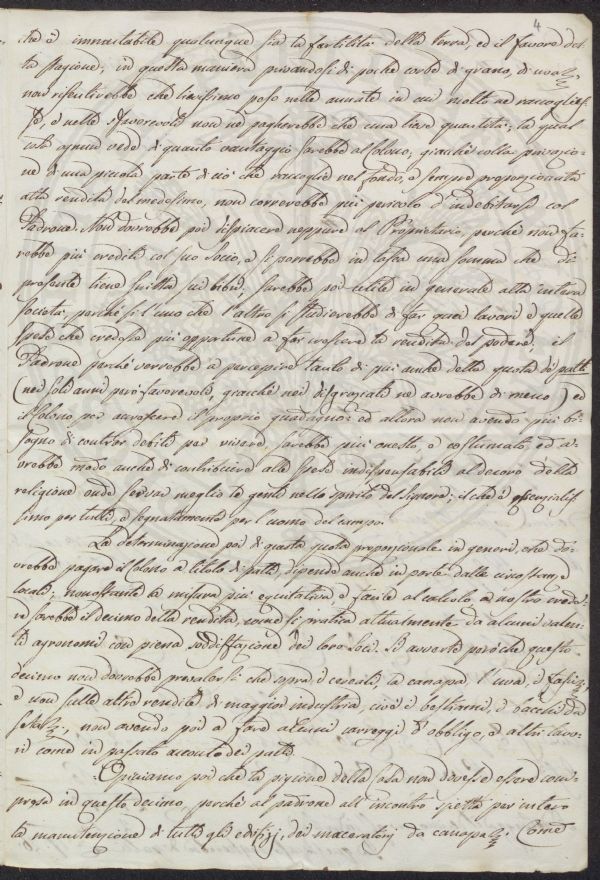 4
che è immutabile qualunque sia la fertilità della terra, ed il favore del-
la stagione; in questa maniera privandosi di poche corbe di grano, di uva &c.
non risentirebbe che lievissimo peso nelle annate in cui molto ne raccoglies-
se, e nelle sfavorevoli non ne pagherebbe che una lieve quantità; la qual
cosa ognun vede di quanto vantaggio sarebbe al Colono; giacchè colla privazio-
ne di una piccola parte di ciò che raccoglie nel fondo, e sempre proporzionata
alla rendita del medesimo, non correrebbe più pericolo d'indebitarsi col
Padrone. Non dovrebbe poi dispiacere neppure al Proprietario, perchè non fa-
rebbe più crediti col suo Socio, e si porrebbe in tasca una somma che di
presente tiene scritta sui libri; sarebbe poi utile in generale alla intera
società, perchè sì l'uno che l'altro si studierebbe di far quei lavori e quelle
spese che credesse più opportune a far crescere la rendita del podere; il
Padrone perchè verrebbe a percepire tanto di più anche della quota de' patti
(nei soli anni però favorevoli, giacchè nei disgraziati ne avrebbe di meno) ed
il Colono per accrescere il proprio guadagno: ed allora non avendo più bi-
sogno di contrar debiti per vivere sarebbe più onesto, e costumato, ed a-
vrebbe modo anche di contribuire alle spese indispensabili al decoro della
religione onde serva meglio le genti nello spirito del Signore; il che è essenzialis-
simo per tutti, e segnatamente per l'uomo del campo.
La determinazione poi di questa quota proporzionale in generi, che do-
vrebbe pagare il Colono a titolo di patti, dipende anche in parte dalle circostanze
locali; nonostante la misura più equitativa, e facile al calcolo a nostro crede-
re sarebbe il decimo della rendita, come si pratica attualmente da alcuni valen-
ti agronomi con piena soddisfazione dei loro Soci. Si avverte però che questo
decimo non dovrebbe prevalersi che sopra i cereali, la canapa, l'uva, i fascj &c.
e non sulle altre rendite di maggior industria, cioè i bestiami, i bacchi da
seta &c., non avendo poi a fare alcuni carreggi d'obbligo, e altri lavo-
ri come in passato a conto dei patti.
Opiniamo poi che la pigione della casa non dovesse essere com-
presa in questo decimo, perchè al padrone all'incontro spetta per intero
la manutenzione di tutti gli edifizj, dei maceratoj da canapa &c. Come